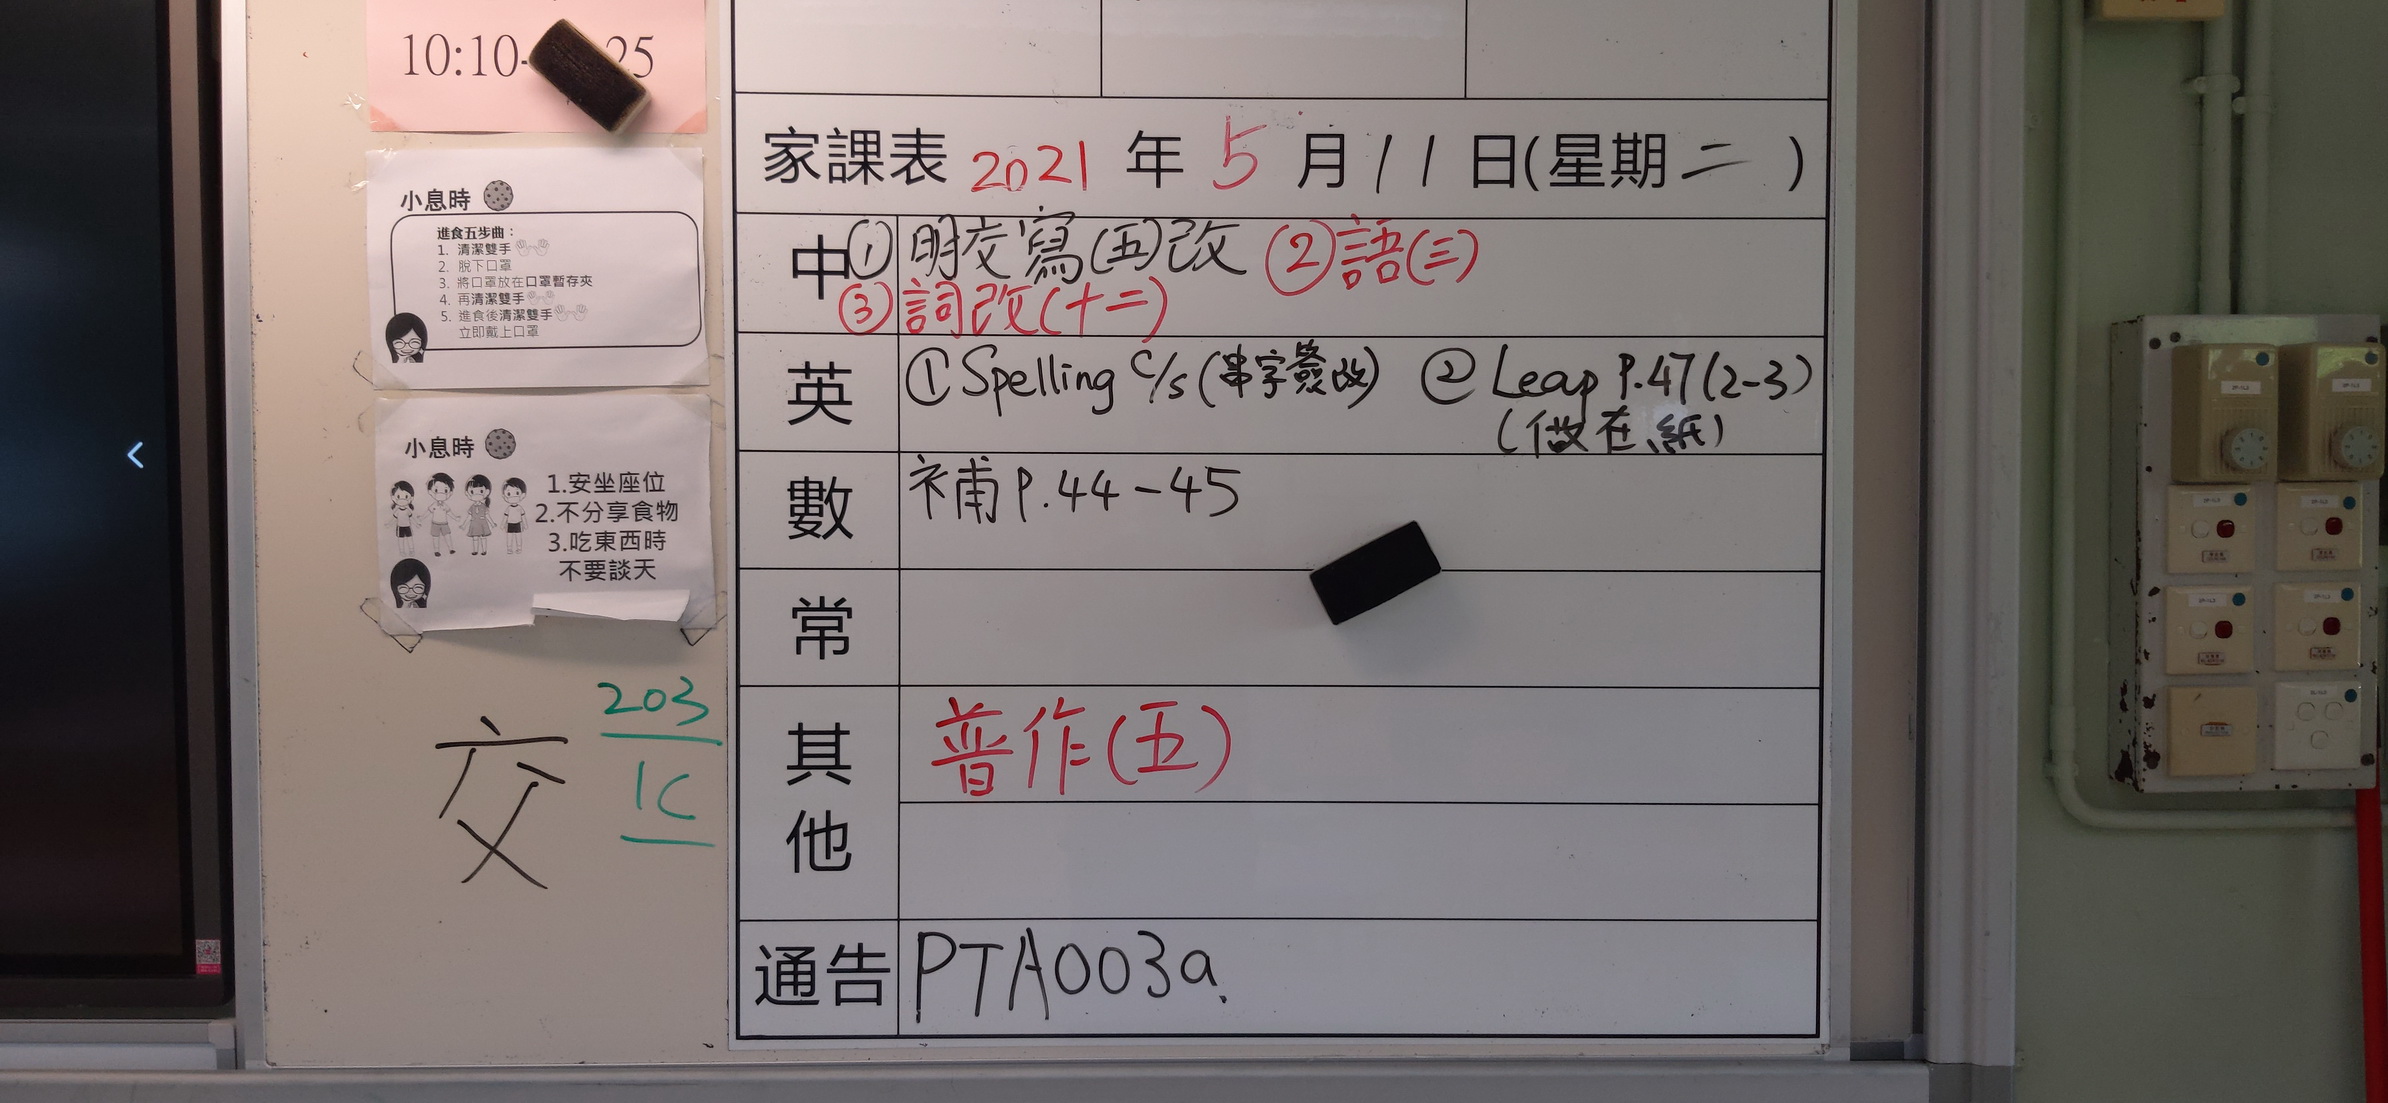 10:10-
25
小息時
進食五步曲：
1. 清潔雙手
2. 脫下口罩
3. 將口罩放在口罩暫存夾
4. 再清潔雙手
5. 進食後清潔雙手
立即戴上口罩
小息時
1.安坐座位
2.不分享食物
3.吃東西時
不要談天
交
203
1C
家課表 2021 年 5 月 11 日(星期二)
中 ①明交寫(五)改 ②語(三)
③詞改(十二)
英 ①Spelling c/s(串字簽改) ②Leap P.47(2-3)
(做在紙)
數 補P.44-45
常
其他 普作(五)
通告 PTA003a.